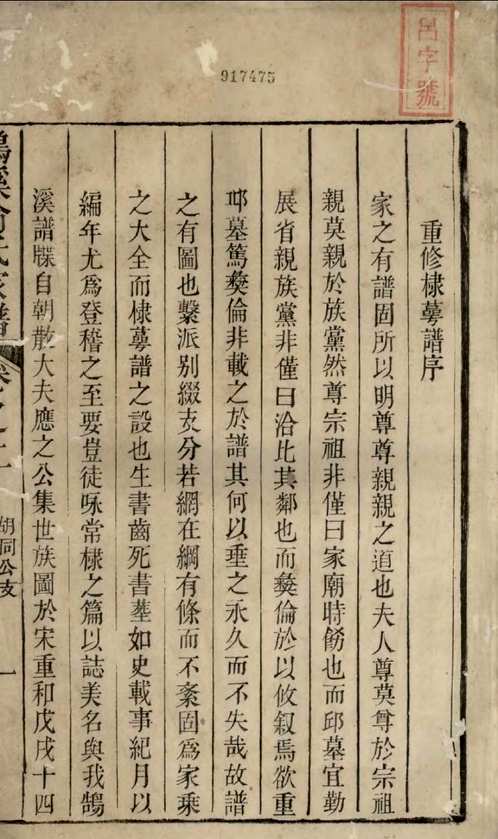 呂字號
917475
重修棣萼譜序
家之有譜固所以明尊尊親親之道也夫人尊莫尊於宗祖
親莫親於族黨然尊宗祖非僅曰家廟時餝也而邱墓宜勤
展省親族黨非僅曰洽比其鄰也而彜倫於以攸叙焉欲重
邱墓篤彜倫非載之於譜其何以垂之永久而不失哉故譜
之有圖也繫派别綴支分若網在綱有條而不紊固爲家乘
之大全而棣萼譜之設也生書齒死書塟如史載事紀月以
編年尤爲登稽之至要豈徒咏常棣之篇以誌美名與我鵠
溪譜牒自朝散大夫應之公集世族圖於宋重和戊戌十四
鵠溪俞氏家譜
卷之二
胡同公支
一